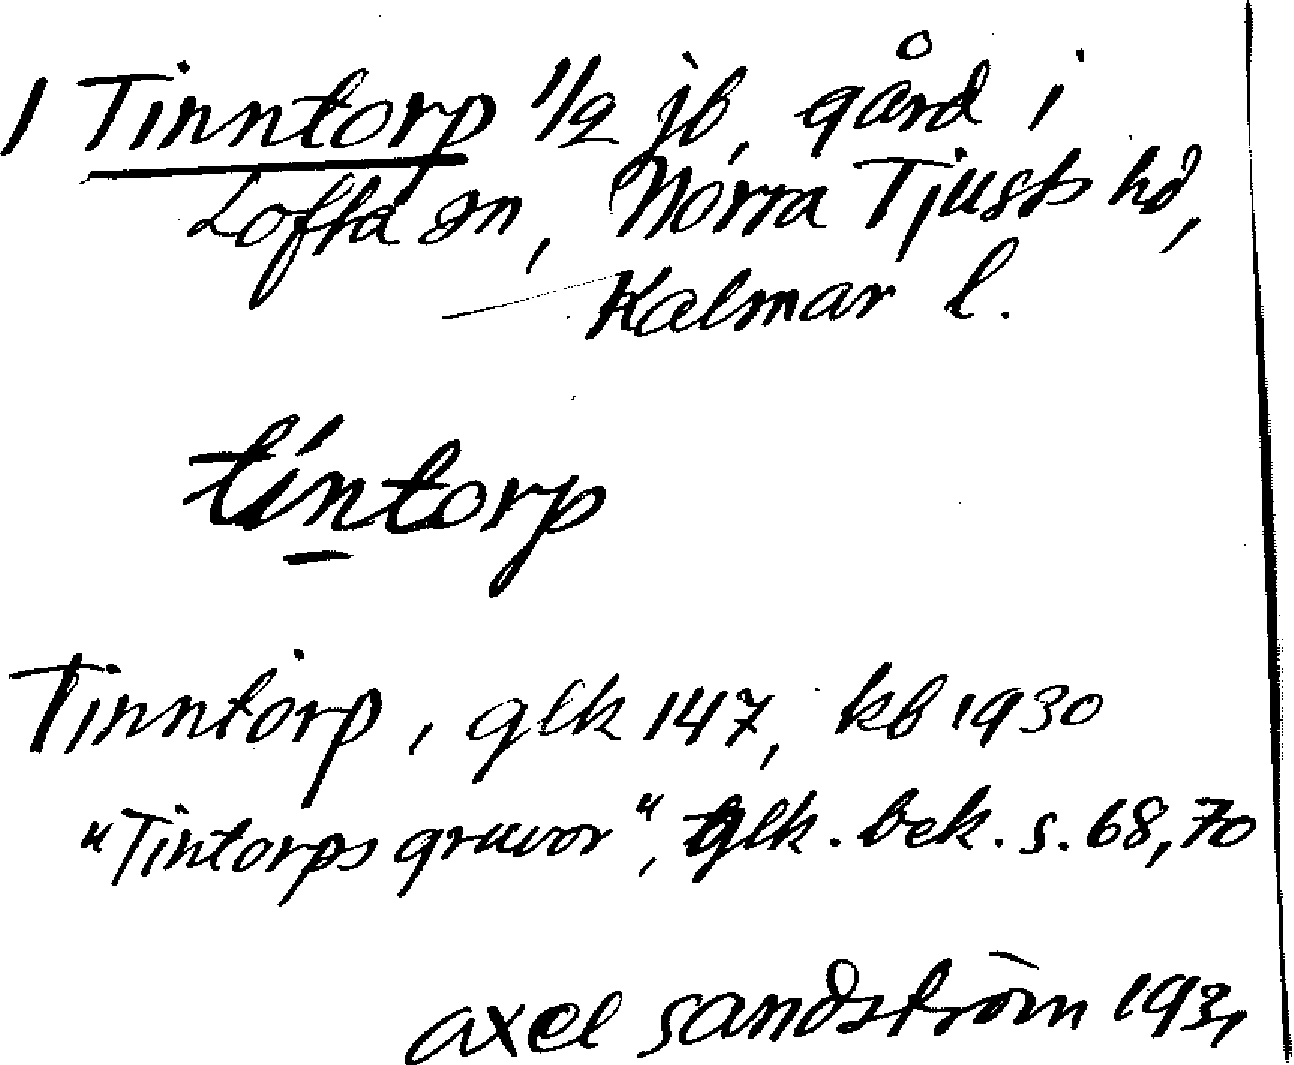 1 Tinntorp 1/2 jb, gård i
Lofta sn, Norra Tjusts hd,
Kalmar l.
tíntorp
Tinntorp, glk 147, kb 1930
"Tintorps gruvor", glk. bek. s. 68, 70
axel sandström 193